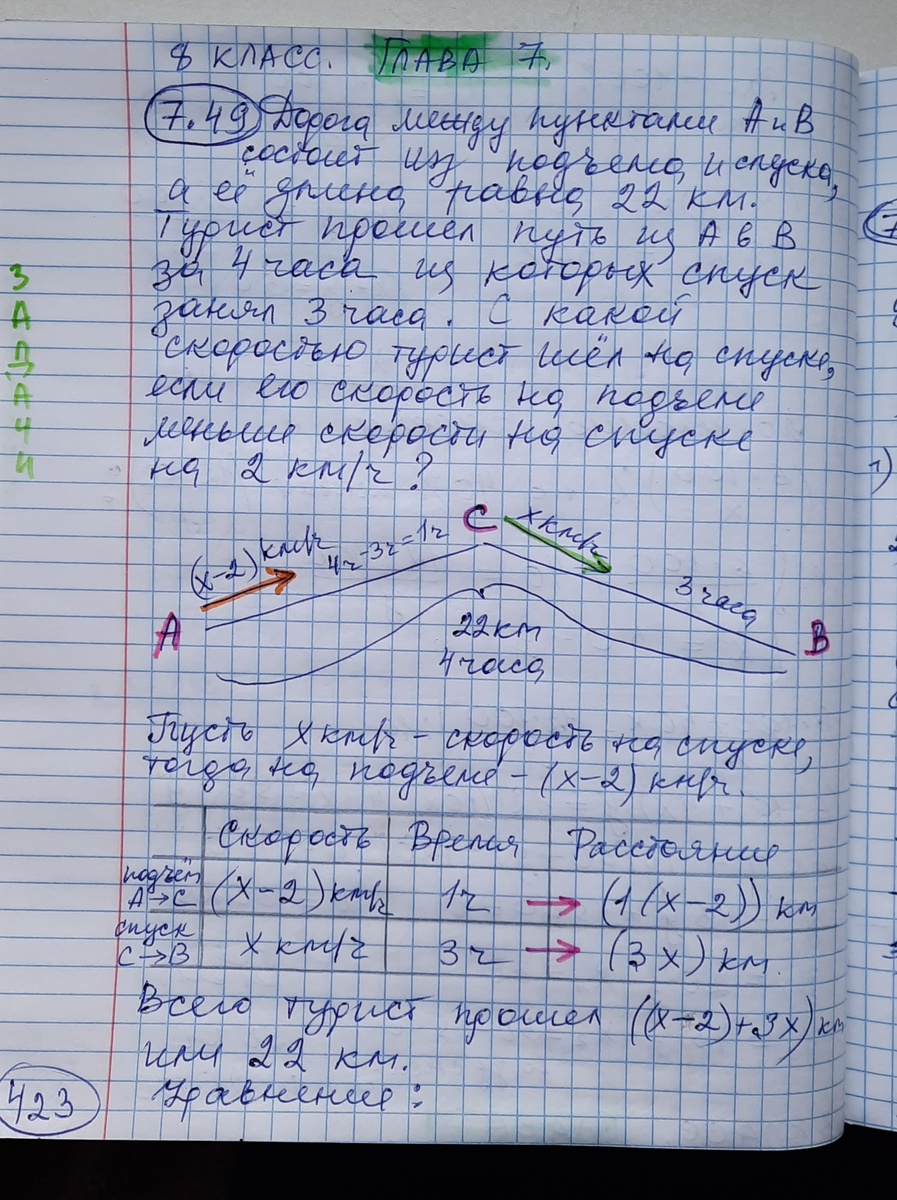 8 КЛАСС. ГЛАВА 7.
7.49 Дорога между пунктами А и В
состоит из подъёма и спуска,
а её длина равна 22 км.
Турист прошел путь из А в В
за 4 часа из которых спуск
занял 3 часа. С какой
скоростью турист шёл на спуске,
если его скорость на подъеме
меньше скорости на спуске
на 2 км/ч?
З
А
Д
А
Ч
И
(х-2) км/ч
4ч-3ч=1ч
С
х км/ч
3 часа
А
22 км
В
4 часа
Пусть х км/ч - скорость на спуске,
тогда на подъеме - (х-2) км/ч.
Скорость Время Расстояние
подъём
А→С (х-2) км/ч 1ч → (1(х-2)) км
спуск
С→В х км/ч 3ч → (3х) км.
Всего турист прошел ((х-2)+3х) км
или 22 км.
Уравнение:
423
1)